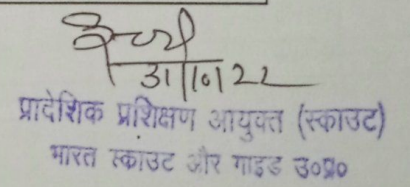 31/10/22
प्रादेशिक प्रशिक्षण आयुक्त (स्काउट)
भारत स्काउट और गाइड उ०प्र०